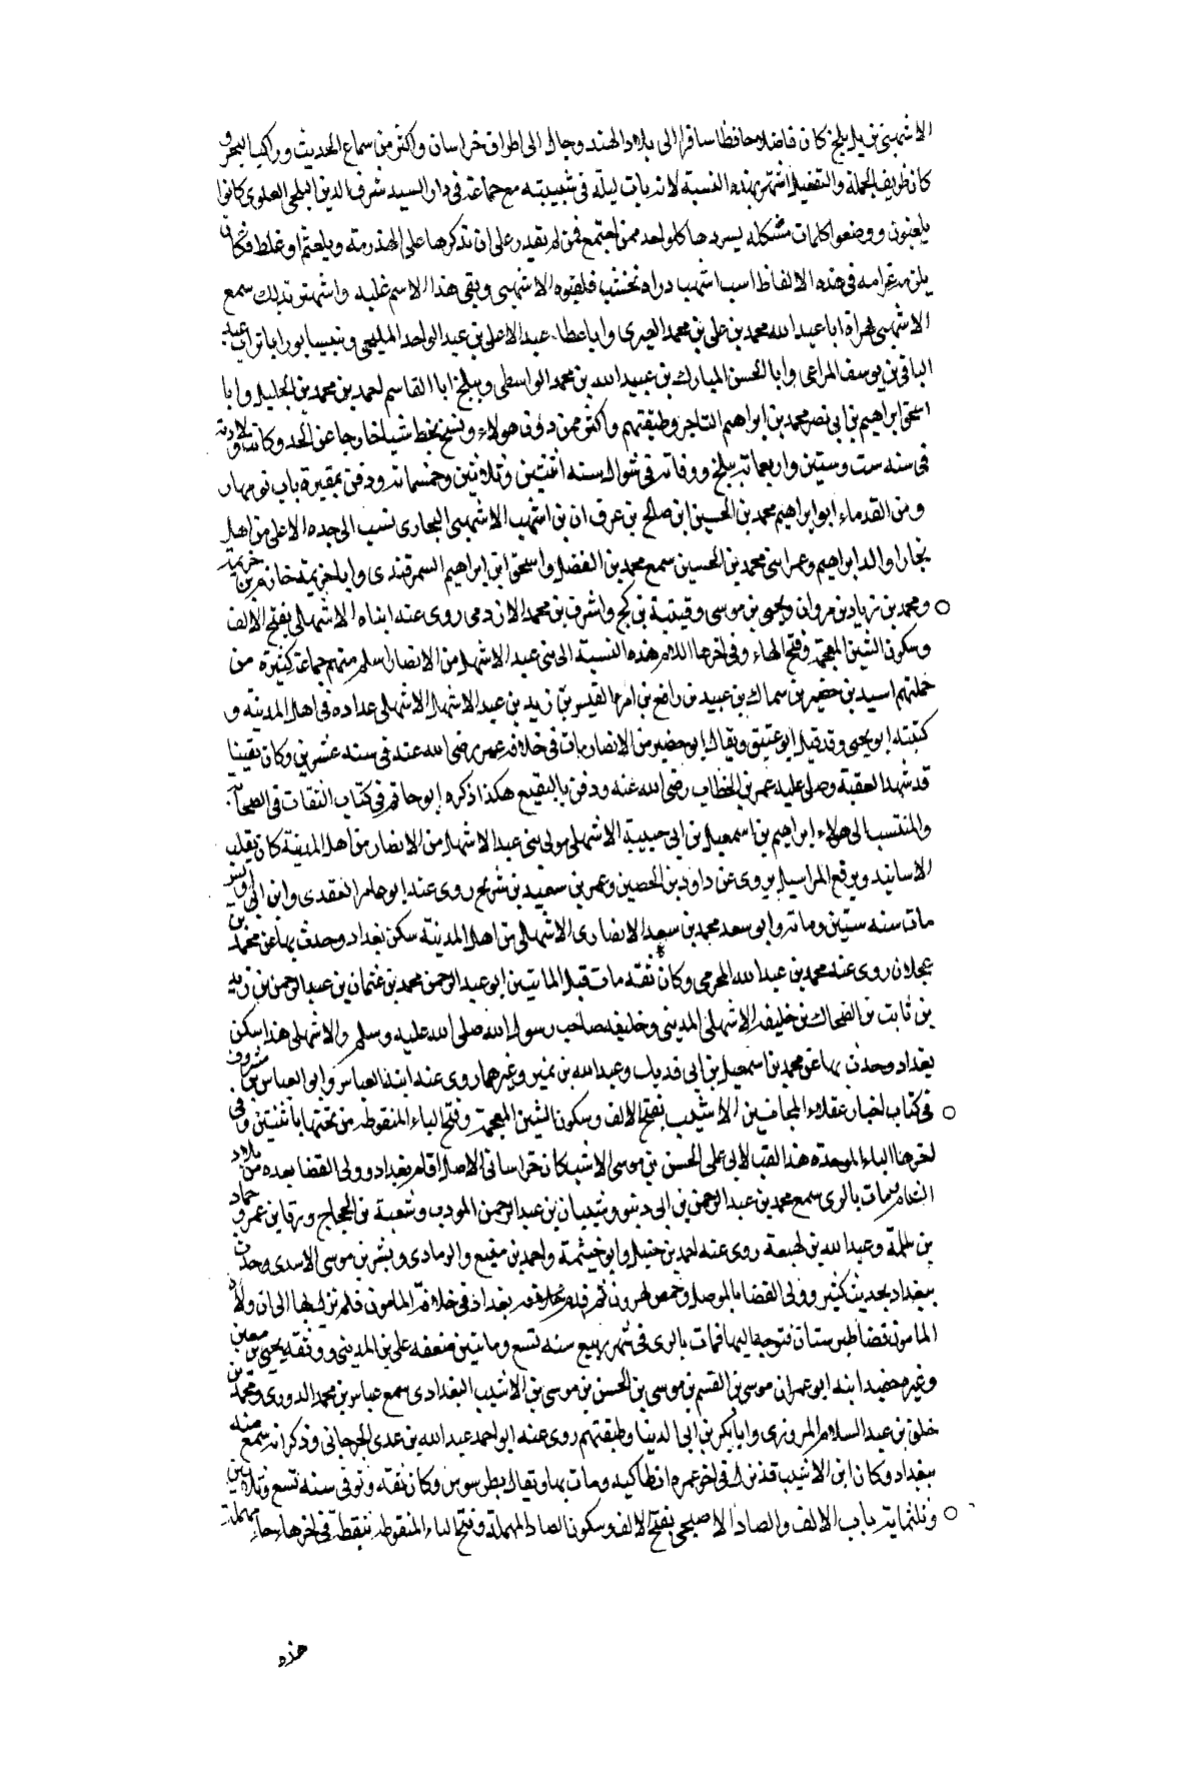 الاشهبى نزيل بلخ كان فاضلا حافظا سافر الى بلاد الهند وجال الى اطراف خراسان واكثر من سماع الحديث وراكبا البحر و
كان ظريف الجملة والتفصيل اشتهر بهذه النسبة لانه بات ليلة فى شبيبته مع جماعة فى دار السيد شرف الدين البلخى العلوى كانوا
يلعبون ووضعوا كلمات مشكله يسردها كل واحد ممن اجتمع فمن لم يقدر على ان يذكرها على الهذرمة ويلعثم او غلط فكان
يلزمه غرامه فى هذه الالفاظ اسب اشهب دراه نخشب فلقبوه الاشهبى وبقى هذا الاسم عليه واشتهر بذلك سمع
الاشهبى بهراة ابا عبد الله محمد بن على بن محمد العميرى وابا عطاء عبد الاعلى بن عبد الواحد المليحى وبنيسابور ابا تراب عبد
الباقى بن يوسف المراغى وابا الحسن المبارك بن عبيد الله بن محمد الواسطى وببلخ ابا القاسم احمد بن محمد بن الخليل وابا
اسحق ابراهيم بن ابى نصر محمد بن ابراهيم التاجر وطبقتهم واكثر ممن دون هولاء ونسخ بخط شيا خارجا عن الحد وكانت ولادته
فى سنه ست وستين واربعمائه ببلخ ووفاته فى شوال سنه اثنتين وثلاثين وخمسمائه ودفن بمقبرة باب نوبهار
ومن القدماء ابو ابراهيم محمد بن الحسين ابن صالح بن عرف ان بن اشهب الاشهبى البخارى نسب الى جده الاعلى من اهل
بخارا والد ابراهيم وعمر ابنى محمد بن الحسين سمع محمد بن الفضل واسحق ابن ابراهيم السمرقندى وابا خزيمة خازم بن خزيمة
ومحمد بن زياد بن مروان ويحيى بن موسى وقتيبة بن كج واشرف بن محمد الازدى روى عنه ابناه الاشهلى بفتح الالف
وسكون الشين المعجمة وفتح الهاء وفى اخرها اللام هذه النسبة الى بنى عبد الاشهل من الانصار اسلم منهم جماعة كثيرة من
جملتهم اسيد بن حضير بن سماك بن عبيد بن رافع بن امرء القيس بن زيد بن عبد الاشهل الاشهلى عداده فى اهل المدينه و
كنيته ابو يحيى وقد قيل ابو عتيق ويقال ابو حضير من الانصار مات فى خلافه عمر رضى الله عنه فى سنه عشرين وكان نقيبا
قد شهد العقبة وصلى عليه عمر بن الخطاب رضى الله عنه ودفن بالبقيع هكذا ذكره ابو حاتم فى كتاب الثقات فى الصحا
والمنتسب الى هولاء ابراهيم بن اسمعيل بن ابى حبيبة الاشهلى مولى بنى عبد الاشهل من الانصار من اهل المدينة كان يقلب
الاسانيد ويرفع المراسيل يروى عن داود بن الحصين وعمر بن سعيد بن شريح روى عنه ابو عامر العقدى وابن ابى اويس
مات سنه ستين ومائه وابو سعد محمد بن سعد الانصارى الاشهلى من اهل المدينة سكن بغداد وحدث بها عن محمد بن
عجلان روى عنه محمد بن عبد الله المخرمى وكان ثقه مات قبل الماتين ابو عبد الرحمن محمد بن عثمان بن عبد الرحمن بن زيد
بن ثابت بن الضحاك بن خليفة الاشهلى المدينى وخليفه صاحب رسول الله صلى الله عليه وسلم والاشهلى هذا سكن
بغداد وحدث بها عن محمد بن اسمعيل بن ابى فديك وعبد الله بن نمير وغيرهما روى عنه ابنه العباس وابو العباس بن مسروق
فى كتاب اخبار عقلاء المجانين الاشيب بفتح الالف وسكون الشين المعجمة وفتح الياء المنقوطه من تحتها باثنتين وفى
اخرها الباء الموحده هذا لقب لابى على الحسن بن موسى الاشيب كان خراسانى الاصل اقام ببغداد وولى القضا بعده من بلاد
الشام ومات بالرى سمع محمد بن عبد الرحمن بن ابى ذئب وشيبان بن عبد الرحمن المودب وشعبة بن الحجاج وورقا بن عمر وحماد
بن سلمة وعبد الله بن لهيعة روى عنه احمد بن حنبل وابو خيثمة واحمد بن منيع والرمادى وبشر بن موسى الاسدى وحدث
ببغداد بحديث كثير وولى القضا بالموصل وحمص لهرون ثم قدم بغداد فى خلافة المامون فلم يزل بها الى ان ولاه
المامون قضا طبرستان فتوجه اليها فمات بالرى فى شهر ربيع سنه تسع وماتين ضعفه على بن المدينى ووثقه يحيى بن معين
وغيره حفيد ابنه ابو عمران موسى بن القسم بن موسى بن الحسن بن موسى بن الاشيب البغدادى سمع عباس بن محمد الدورى ومحمد بن
خلف بن عبد السلام المروزى وابا بكر بن ابى الدنيا وطبقتهم روى عنه ابو احمد عبد الله بن عدى الجرجانى وذكر انه سمع منه
ببغداد وكان ابن الاشيب قد نزل فى اخر عمره انطاكيه ومات بها ويقال بطرسوس وكان ثقه وتوفى سنه تسع وثلاثين
وثلثمايه باب الالف والصاد الاصبحى بفتح الالف وسكون الصاد المهملة وفتح الباء المنقوطه بنقطة فى اخرها حاء مهملة
هذه